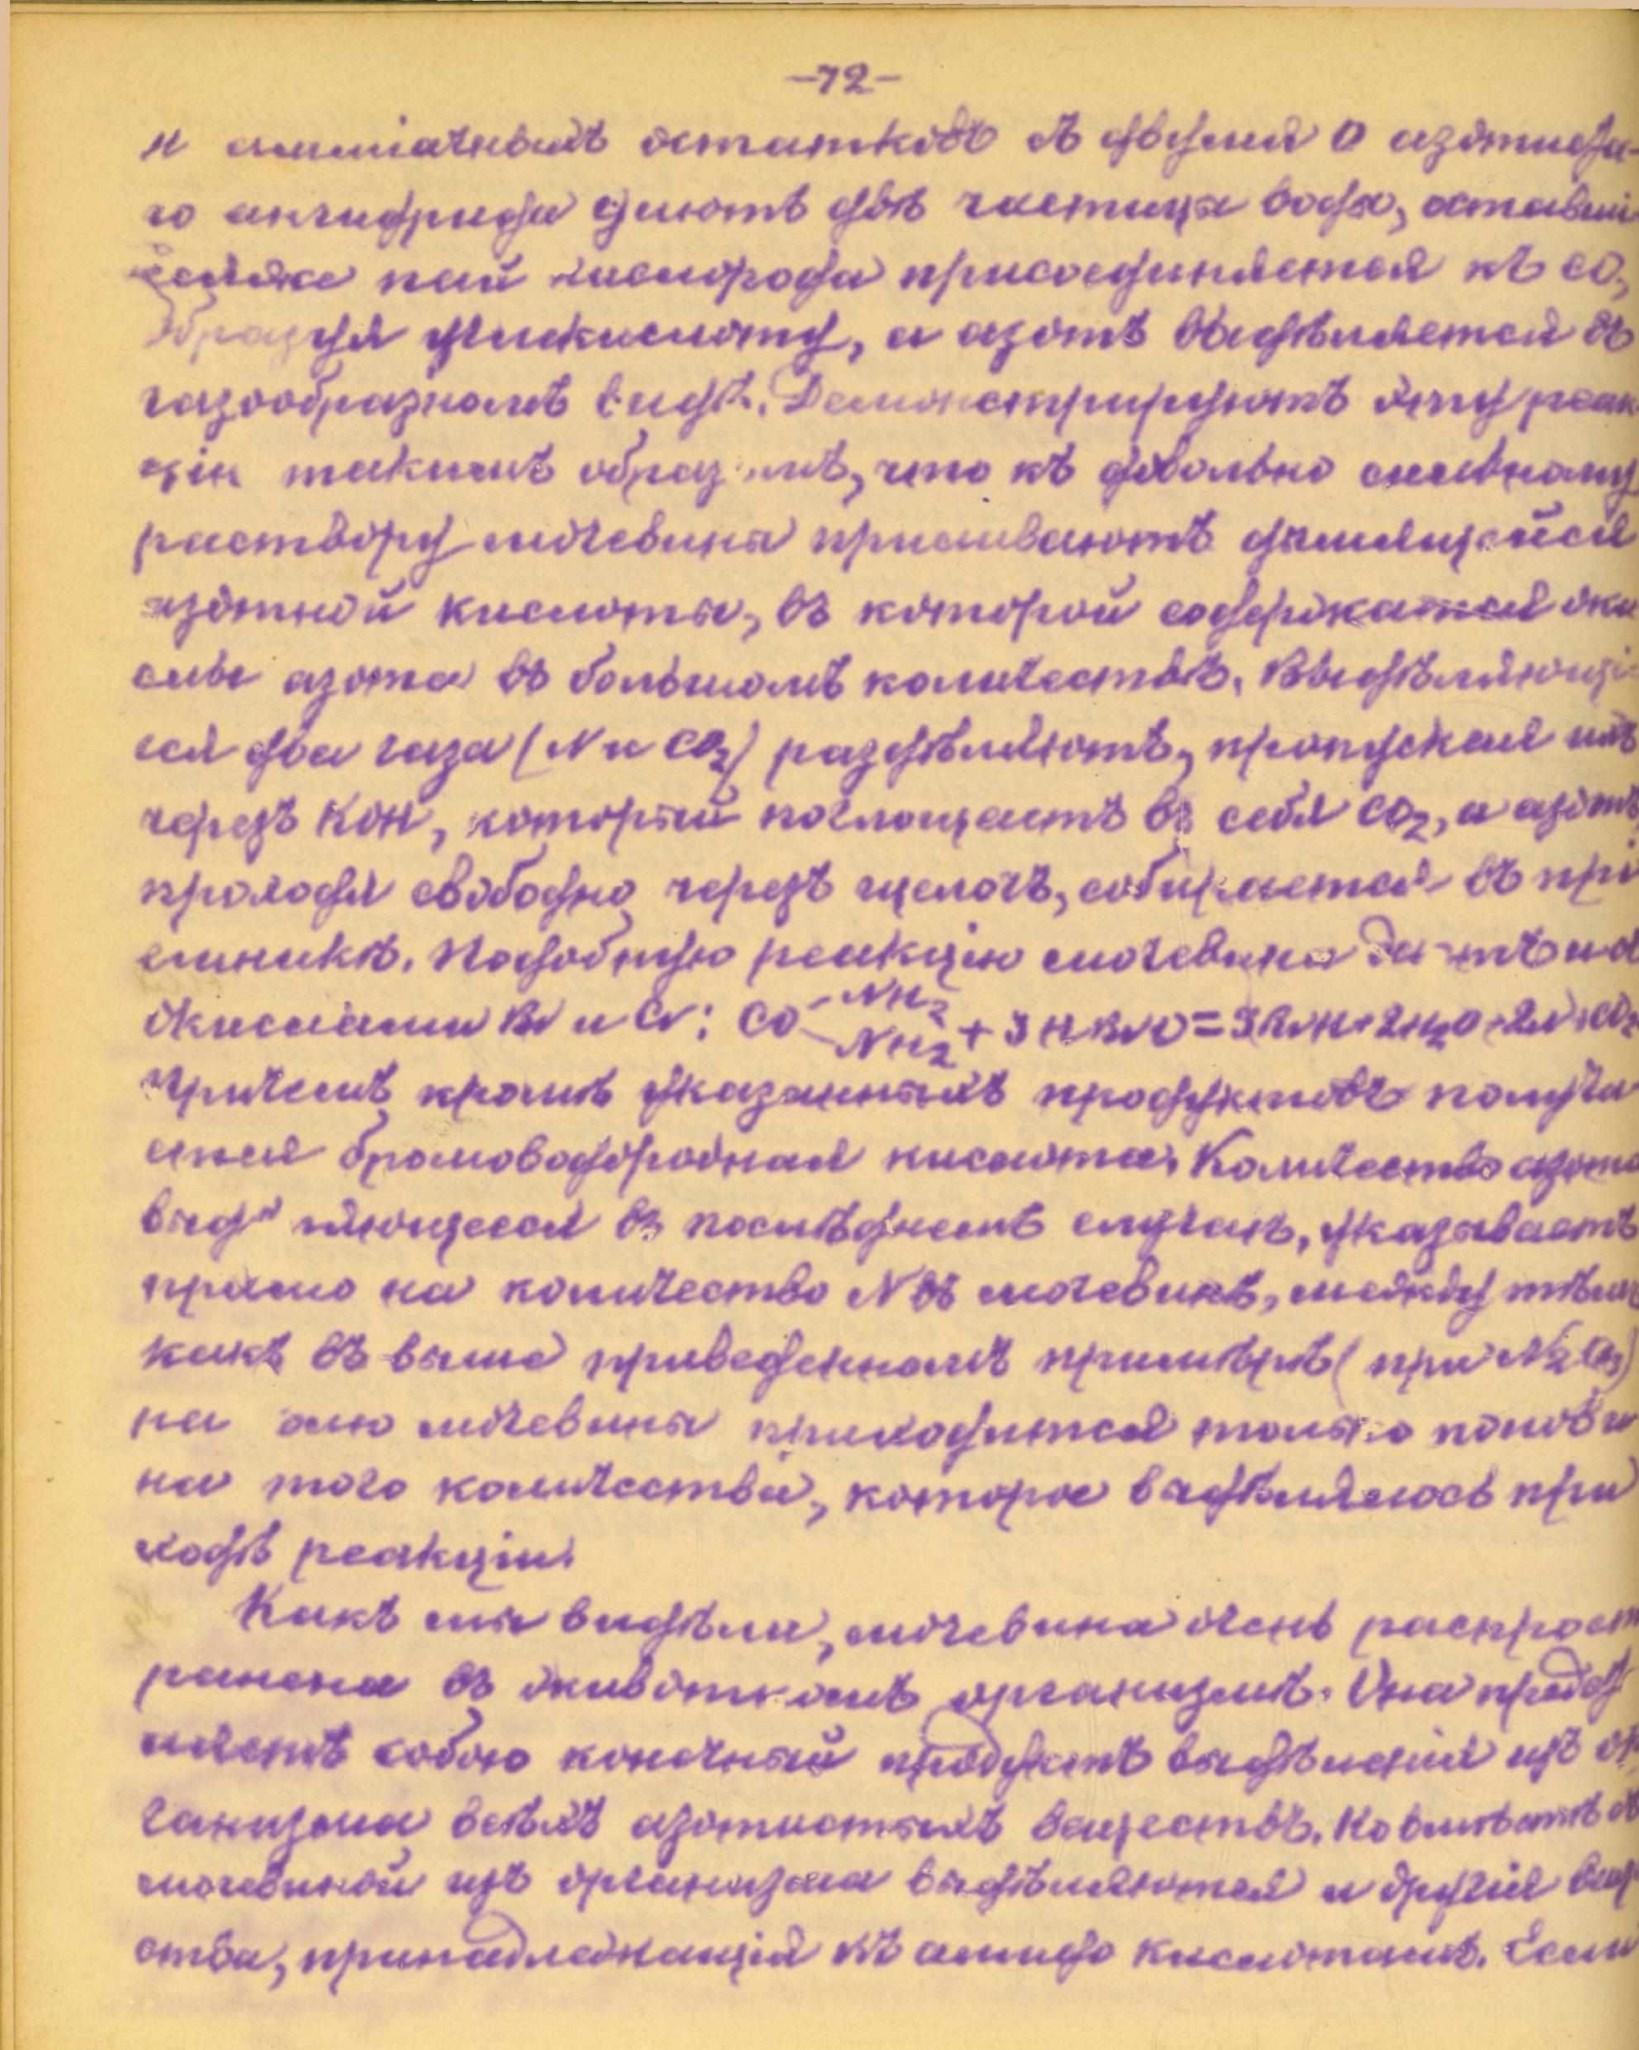 -72-
и амміачныхъ остатковъ съ двумя О азотиста-
го ангидрида даютъ двѣ частицы воды, оставші
ся же пай кислорода присоединяется къ СО,
образуя углекислоту, а азотъ выдѣляется въ
газообразномъ видѣ. Демонстрируютъ эту реак-
цію такимъ образомъ, что къ довольно сильному
раствору мочевины приливаютъ дымящейся
азотной кислоты, въ которой содержатся оки
слы азота въ большомъ количествѣ. Выдѣляющіе
ся два газа (N и CO2) раздѣляютъ, пропуская ихъ
черезъ KOH, который поглощаетъ въ себя CO2, а азотъ,
проходя свободно черезъ щелочь, собирается въ прі
емникѣ. Подобную реакцію мочевина даетъ и съ
окислами Br и Cl: CO NH2 NH2 + 3HBrO = 3BrH + 2H2O + 2N + CO2
Причемъ кромѣ указанныхъ продуктовъ получа
ется бромоводородная кислота. Количество азота
выдѣляющееся въ послѣднемъ случаѣ, указываетъ
прямо на количество N въ мочевинѣ, между тѣмъ
какъ въ выше приведенномъ примѣрѣ (при N2O3)
на долю мочевины приходится только полови
на того количества, которое выдѣлялось при
ходѣ реакціи.
Какъ мы видѣли, мочевина очень распрост
ранена въ животномъ организмѣ. Она предст
ляетъ собою конечный продуктъ выдѣленія изъ ор
ганизма всѣхъ азотистыхъ веществъ. Но вмѣстѣ съ
мочевиной изъ организма выдѣляются и другія вещ
ства, принадлежащія къ амидо кислотамъ. Если